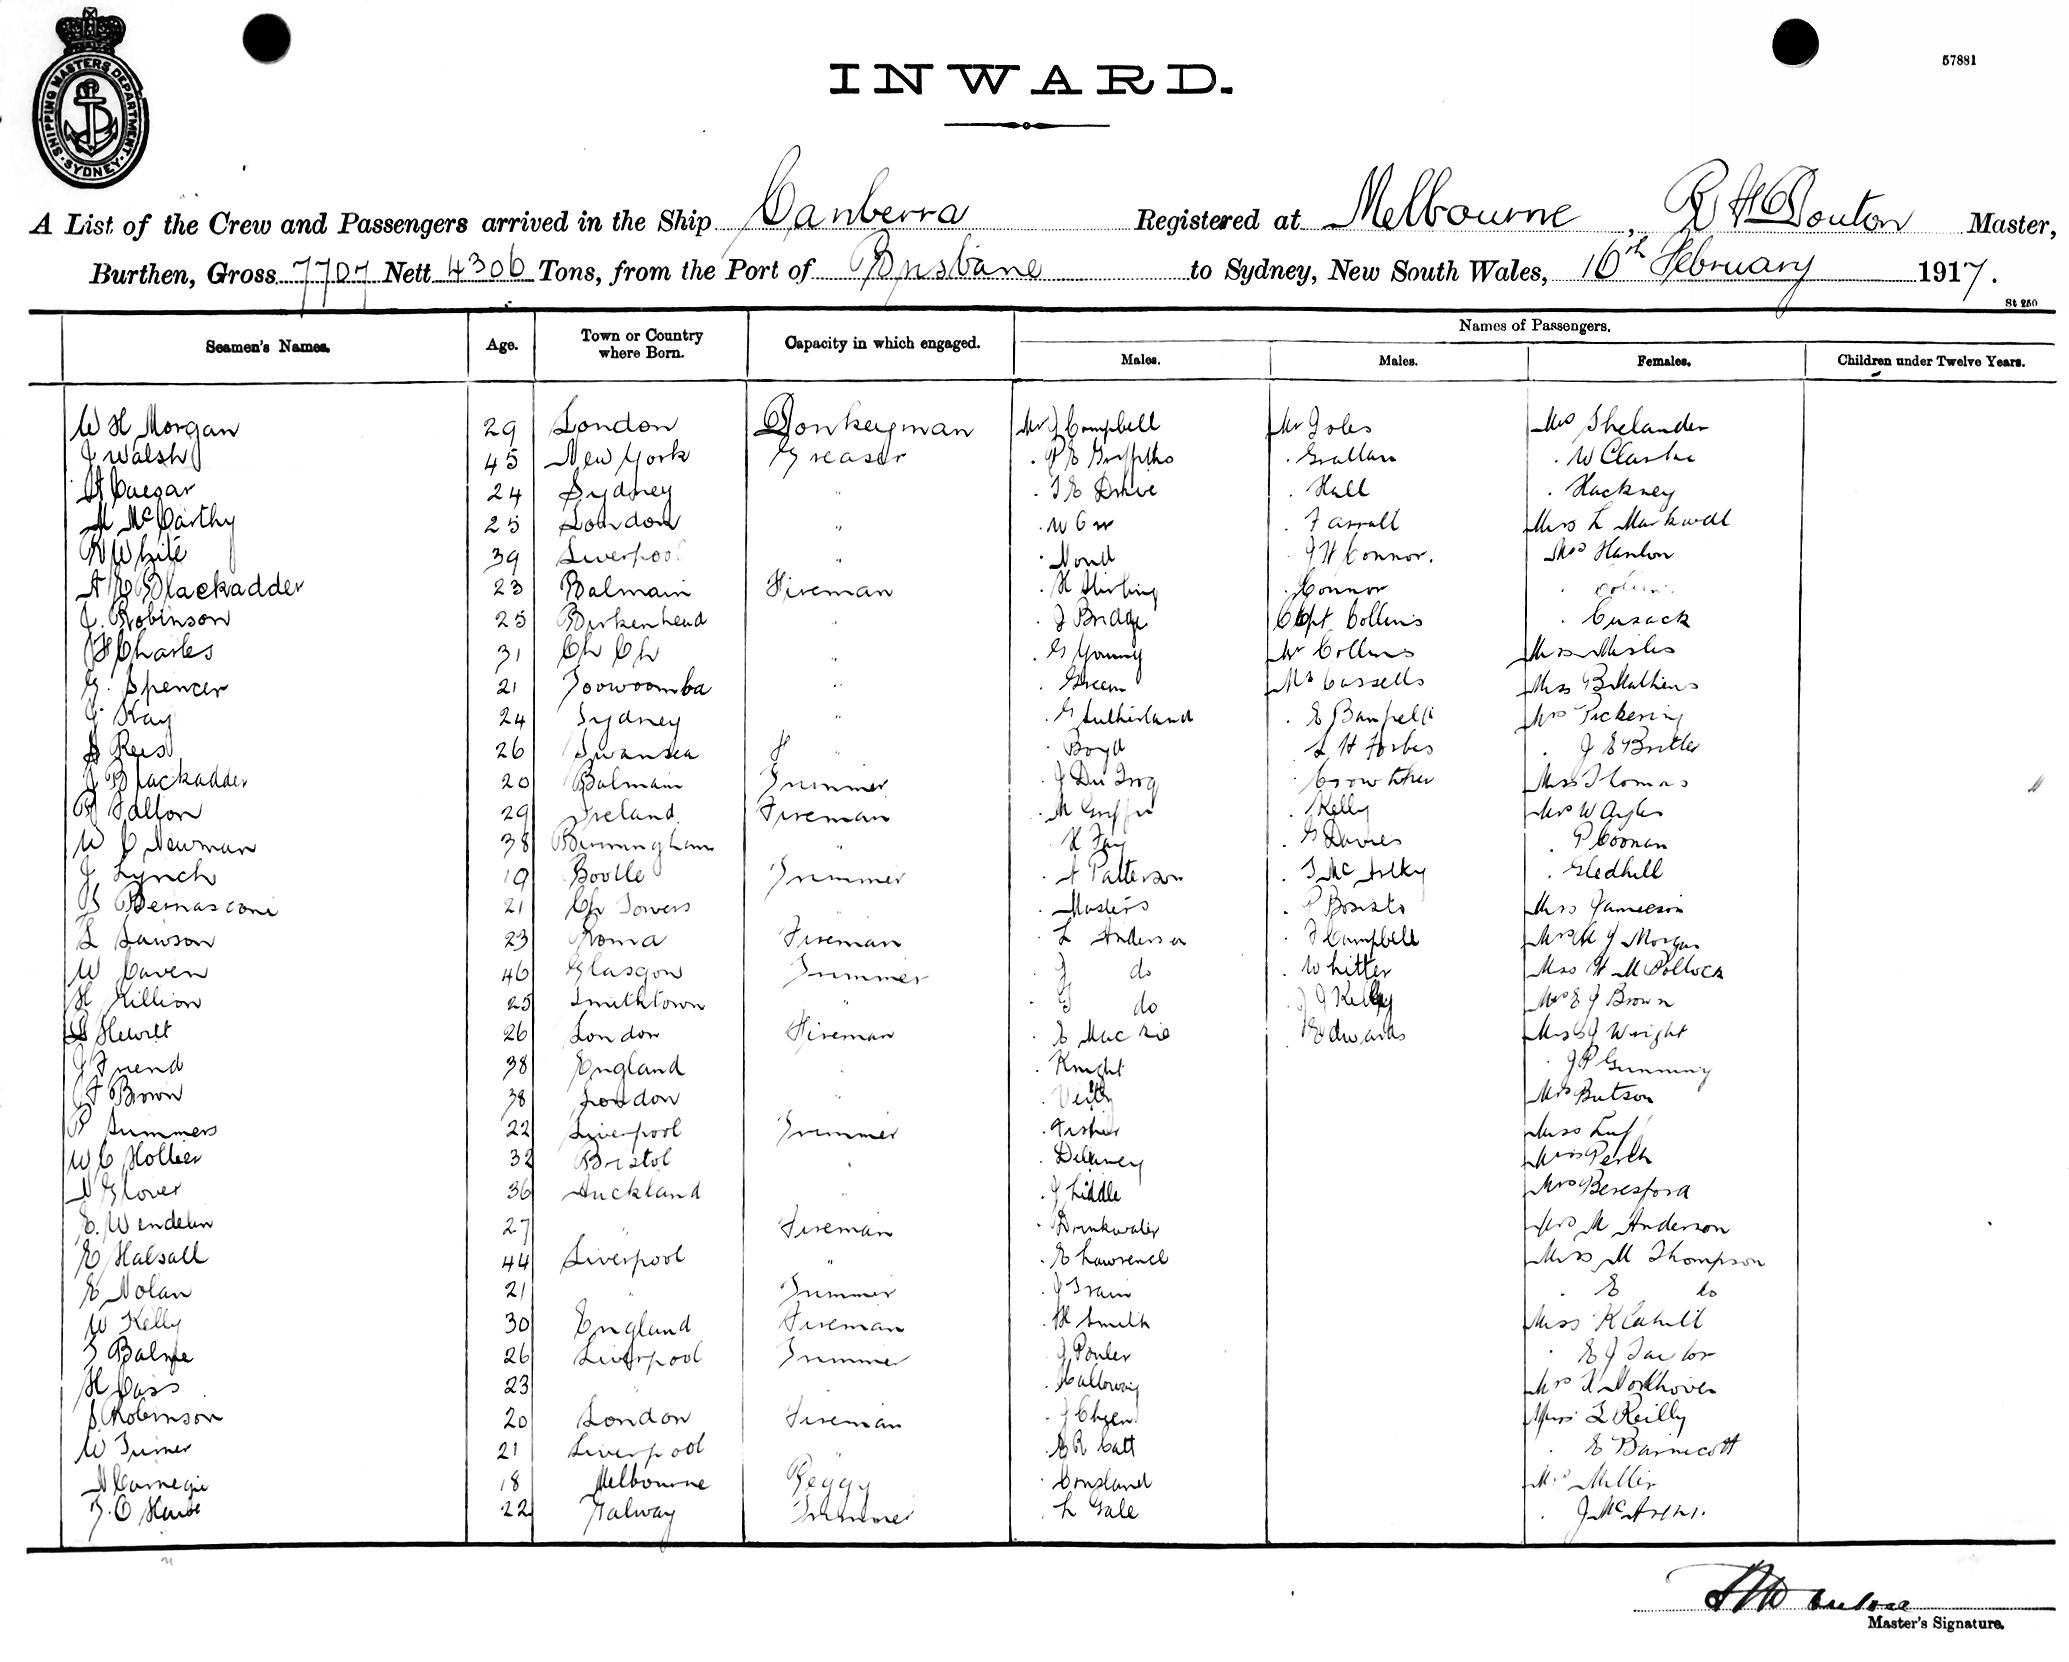 SHIPPING MASTERS DEPARTMENT. SYDNEY
57881
INWARD.
A List of the Crew and Passengers arrived in the Ship Canberra Registered at Melbourne, R H Douton Master,
Burthen, Gross 7707 Nett 4306 Tons, from the Port of Brisbane to Sydney, New South Wales, 16th February 1917.
St 250
Seamen's Names. Age. Town or Country where Born. Capacity in which engaged. Names of Passengers.
Males. Males. Females. Children under Twelve Years.
W H Morgan 29 London Donkeyman Mr J Campbell Mr Joles Mrs Thelander
J Walsh 45 New York Greaser . P E Griffiths . Grattan . W Clarke
A Caesar 24 Sydney " . T E Drive . Hall . Hackney
M McCarthy 25 London " . W . Farrall Miss L Markwell
R White 39 Liverpool " . . J H Connor. Mrs Hanlon
A E Blackadder 23 Balmain Fireman . H Stirling . Connor .
J. Robinson 25 Birkenhead " . J Bridge Capt Collins . Cusack
H Charles 31 Ch Ch " . G Young Mr Collins Miss
G. Spencer 21 Toowoomba " . Green Mr Cassells Miss B Mathews
J Kay 24 Sydney " . G Sutherland . E Banfell Mrs Pickering
Rees 26 Swansea " . Boyd . L H Forbes . J E Butler
J Blackadder 20 Balmain Trimmer . J Du Frog . Crowther Miss Thomas
R Fallon 29 Ireland. Fireman . M Griffin . Kelly Mrs W
W C Newman 38 Birmingham " . H Fay . G Davies . P Coonan
J Lynch 19 Bootle Trimmer . A Patterson . T Mc . Gledhill
B Bernasconi 21 Ch Towers . Masters . P Bosisto Miss Jamieson
L Lawson 23 Roma Fireman . L Anderson . J Campbell Mrs J Morgan
W Caven 46 Glasgow Trimmer . J do . Whitter Miss H M Pollock
H Killion 25 Smithtown " . G do . J J Kelly Mrs E J Brown
Hewitt 26 London Fireman . E Mackie . Edwards Miss J Wright
J Friend 38 England " . Knight . J P Gunning
F Brown 38 London " . Veitch Mrs Butson
P Summers 22 Liverpool Trimmer . Fisher Miss
W C Hollier 32 Bristol " . Delaney Miss Perch
Glover 36 Auckland " . J Liddle Mrs Beresford
E. Wendelin 27 " Fireman . Drinkwater Mrs M Anderson
E Halsall 44 Liverpool " . E Lawrence Miss M Thompson
E Nolan 21 " Trimmer . J Train . E do
W Kelly 30 England Fireman . H Smith Miss K Cahill
T Balme 26 Liverpool Trimmer . J Pouler . E J Taylor
H Cass 23 " . Calloway Mrs
S Robinson 20 London Fireman . J Miss L Reilly
W Turner 21 Liverpool " . E R Catt . E Barnicott
Carnegie 18 Melbourne Peggy . Mrs Miller
T. O 22 Galway Trimmer . L Gale .
Master's Signature.